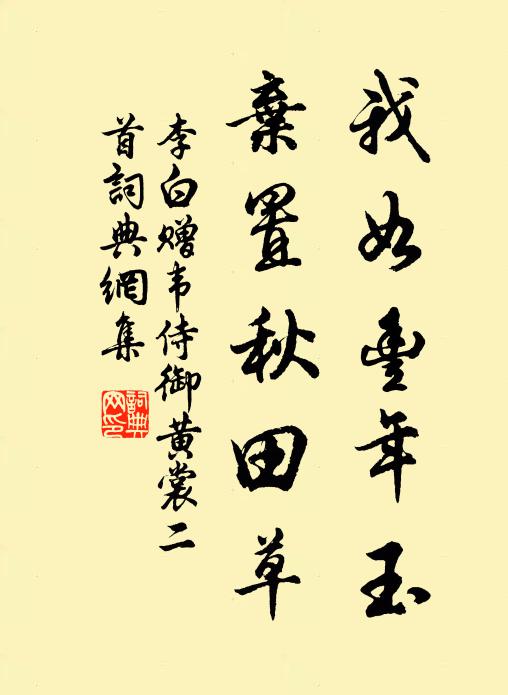 我如豐年玉
棄置秋田草
李白赠韦侍御黄裳二
首詞典網集
詞典
网印